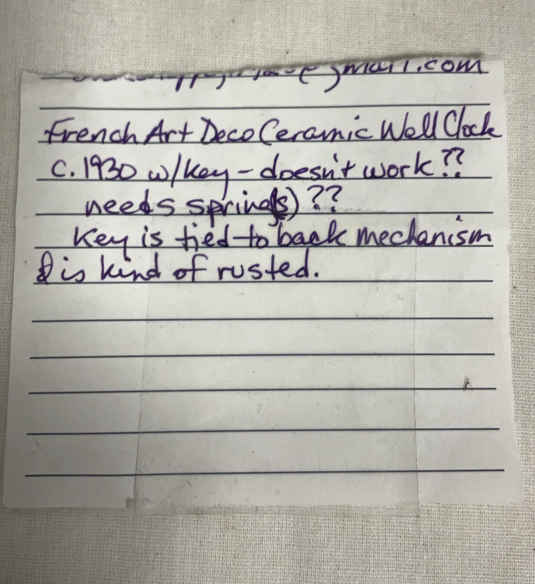 gmail.com
French Art Deco Ceramic Wall Clock
c. 1930 w/key - doesn't work??
needs spring(s)??
Key is tied to back mechanism
& is kind of rusted.